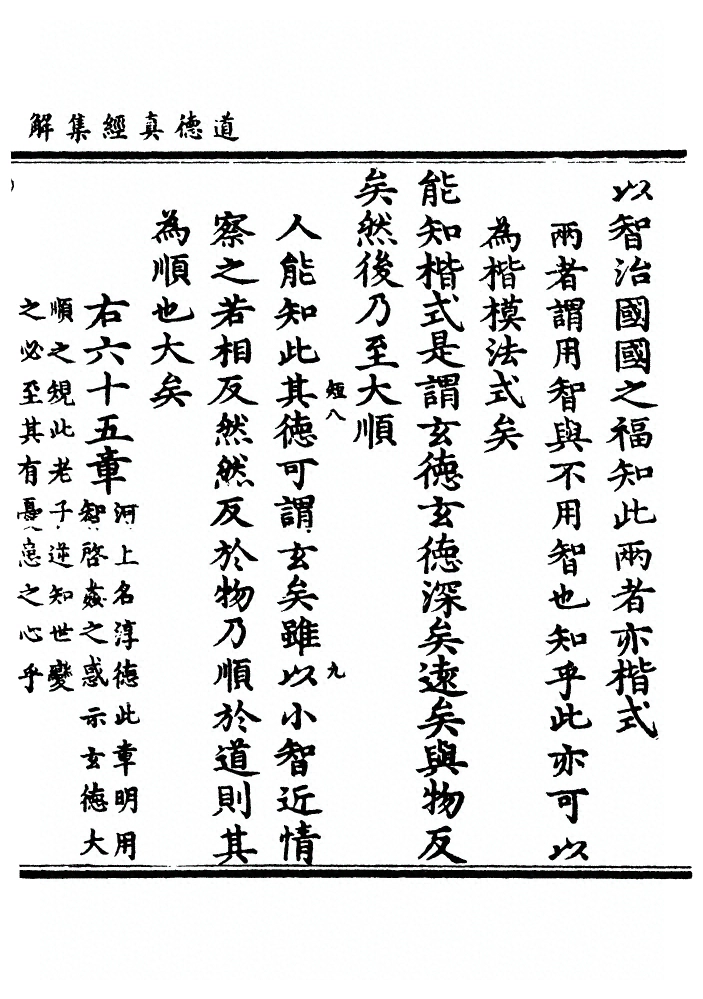 道德真經集解
以智治國國之福知此兩者亦楷式
兩者謂用智與不用智也知乎此亦可以
為楷模法式矣
能知楷式是謂玄德玄德深矣遠矣與物反
矣然後乃至大順
短八
人能知此其德可謂玄矣雖以小智近情
九
察之若相反然然反於物乃順於道則其
為順也大矣
右六十五章
河上名淳德此章明用
智啓姦之惑示玄德大
順之䂓此老子逆知世變
之必至其有憂患之心乎